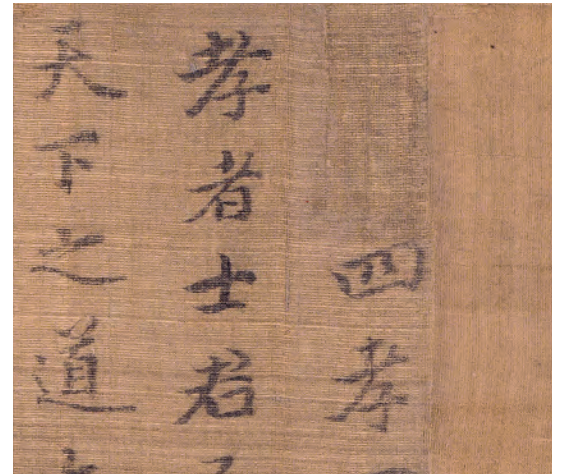 四孝
孝者士君
天下之道